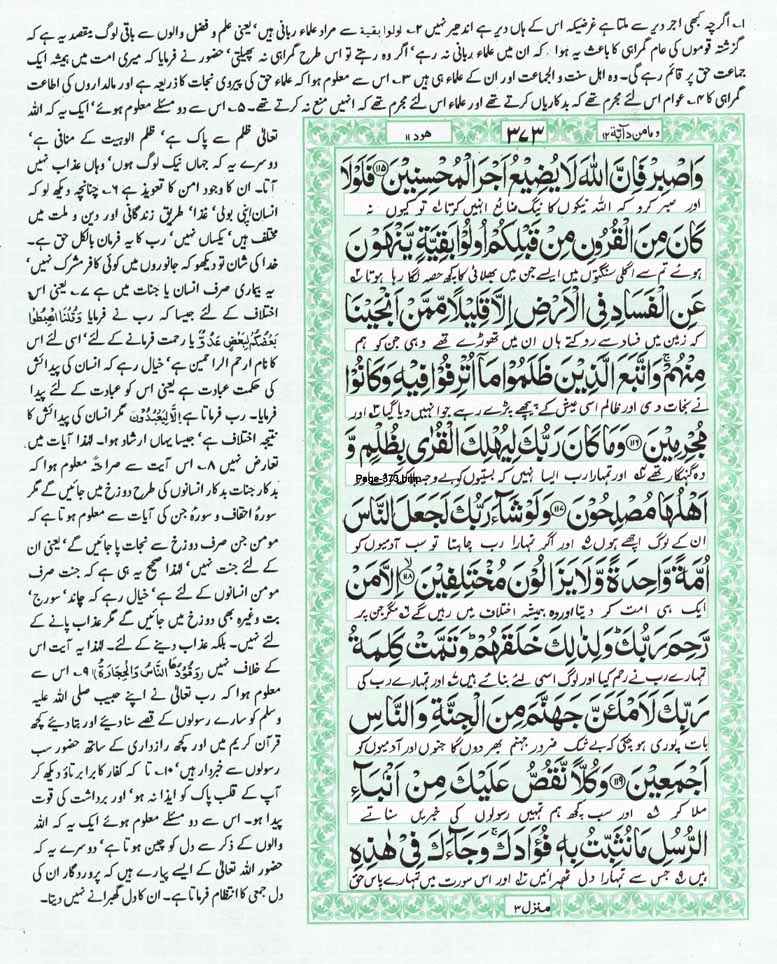 ۱۔ اگرچہ کبھی اجر دیر سے ملتا ہے غرضیکہ اس کے ہاں دیر ہے اندھیر نہیں ۲۔ اولوا بقیۃ سے مراد علماء ربانی ہیں' یعنی علم و فضل والوں سے باقی لوگ مقصد یہ ہے کہ
گزشتہ قوموں کی عام گمراہی کا باعث یہ ہوا کہ ان میں علماء ربانی نہ رہے' اگر وہ رہتے تو اس طرح گمراہی نہ پھیلتی' حضور نے فرمایا کہ میری امت میں ہمیشہ ایک
جماعت حق پر قائم رہے گی۔ وہ اہل سنت و الجماعت اور ان کے علماء ہی ہیں ۳۔ اس سے معلوم ہوا کہ علماء حق کی پیروی نجات کا ذریعہ ہے اور مالداروں کی اطاعت
گمراہی کا ۴۔ عوام اس لئے مجرم تھے کہ بدکاریاں کرتے تھے اور علماء اس لئے مجرم تھے کہ انہیں منع نہ کرتے تھے۔ ۵۔ اس سے دو مسئلے معلوم ہوئے' ایک یہ کہ اللہ
تعالیٰ ظلم سے پاک ہے' ظلم الوہیت کے منافی ہے'
دوسرے یہ کہ جہاں نیک لوگ ہوں' وہاں عذاب نہیں
آتا۔ ان کا وجود امن کا تعویذ ہے ۶۔ چنانچہ دیکھ لو کہ
انسان اپنی بولی' غذا' طریق زندگانی اور دین و ملت میں
مختلف ہیں' یکساں نہیں' رب کا یہ فرمان بالکل حق ہے۔
خدا کی شان تو دیکھو کہ جانوروں میں کوئی کافر مشرک نہیں'
یہ بیماری صرف انسان یا جنات میں ہے ۷۔ یعنی اس
اختلاف کے لئے جیسا کہ رب نے فرمایا وَقُلْنَا اهْبِطُوْا
بَعْضُكُمْ لِبَعْضٍ عَدُوٌّ یا رحمت فرمانے کے لئے' اسی لئے اس
کا نام ارحم الراحمین ہے' خیال رہے کہ انسان کی پیدائش
کی حکمت عبادت ہے یعنی اس کو عبادت کے لئے پیدا
فرمایا۔ رب فرماتا ہے اِلَّا لِيَعْبُدُوْنِ مگر انسان کی پیدائش کا
نتیجہ اختلاف ہے' جیسا یہاں ارشاد ہوا۔ لہٰذا آیات میں
تعارض نہیں ۸۔ اس آیت سے صراحتہً معلوم ہوا کہ
بدکار جنات بدکار انسانوں کی طرح دوزخ میں جائیں گے مگر
سورۂ احقاف و سورۂ جن کی آیات سے معلوم ہوتا ہے کہ
مومن جن صرف دوزخ سے نجات پا جائیں گے' یعنی ان
کے لئے جنت نہیں' لہٰذا صحیح یہ ہی ہے کہ جنت صرف
مومن انسانوں کے لئے ہے' خیال رہے کہ چاند' سورج'
بت وغیرہ بھی دوزخ میں جائیں گے مگر عذاب پانے کے
لئے نہیں۔ بلکہ عذاب دینے کے لئے۔ لہٰذا یہ آیت اس
کے خلاف نہیں (وَقُوْدُهَا النَّاسُ وَالْحِجَارَةُ) ۹۔ اس سے
معلوم ہوا کہ رب تعالیٰ نے اپنے حبیب صلی اللہ علیہ
وسلم کو سارے رسولوں کے قصے سنا دیئے اور بتا دیئے کچھ
قرآن کریم میں اور کچھ رازداری کے ساتھ حضور سب
رسولوں سے خبردار ہیں' ۱۰۔ تا کہ کفار کا برا برتاؤ دیکھ کر
آپ کے قلب پاک کو ایذا نہ ہو' اور برداشت کی قوت
پیدا ہو۔ اس سے دو مسئلے معلوم ہوئے ایک یہ کہ اللہ
والوں کے ذکر سے دل کو چین ہوتا ہے' دوسرے یہ کہ
حضور اللہ تعالیٰ کے ایسے پیارے ہیں کہ پروردگار ان کی
دل جمعی کا انتظام فرماتا ہے۔ ان کا دل گھبرانے نہیں دیتا۔
ومامن دآبۃ ۱۲ ۳۷۳ ھود ۱۱
وَاصْبِرْ فَاِنَّ اللّٰهَ لَا يُضِيْعُ اَجْرَ الْمُحْسِنِيْنَ ﴿۱۱۵﴾ فَلَوْلَا
اور صبر کرو کہ اللہ نیکوں کا نیگ ضائع نہیں کرتا ۱ تو کیوں نہ
كَانَ مِنَ الْقُرُوْنِ مِنْ قَبْلِكُمْ اُولُوْا بَقِيَّةٍ يَّنْهَوْنَ
ہوئے تم سے اگلی سنگتوں میں ایسے جن میں بھلائی کا کچھ حصہ لگا رہا ہوتا ۲
عَنِ الْفَسَادِ فِي الْاَرْضِ اِلَّا قَلِيْلًا مِّمَّنْ اَنْجَيْنَا
کہ زمین میں فساد سے روکتے ہاں ان میں تھوڑے تھے وہی جن کو ہم
مِنْهُمْ ۚ وَاتَّبَعَ الَّذِيْنَ ظَلَمُوْا مَا اُتْرِفُوْا فِيْهِ وَكَانُوْا
نے نجات دی اور ظالم اسی عیش کے پیچھے پڑے رہے جو انہیں دیا گیا ۳ اور
مُجْرِمِيْنَ ﴿۱۱۶﴾ وَمَا كَانَ رَبُّكَ لِيُهْلِكَ الْقُرٰى بِظُلْمٍ وَّ
وہ گنہگار تھے ۴ اور تمہارا رب ایسا نہیں کہ بستیوں کو بے وجہ ہلاک کر
Page-373.bmp
اَهْلُهَا مُصْلِحُوْنَ ﴿۱۱۷﴾ وَلَوْ شَآءَ رَبُّكَ لَجَعَلَ النَّاسَ
ان کے لوگ اچھے ہوں ۵ اور اگر تمہارا رب چاہتا تو سب آدمیوں کو
اُمَّةً وَّاحِدَةً وَّلَا يَزَالُوْنَ مُخْتَلِفِيْنَ ﴿۱۱۸﴾ اِلَّا مَنْ
ایک ہی امت کر دیتا اور وہ ہمیشہ اختلاف میں رہیں گے ۶ مگر جن پر
رَّحِمَ رَبُّكَ ؕ وَلِذٰلِكَ خَلَقَهُمْ ؕ وَتَمَّتْ كَلِمَةُ
تمہارے رب نے رحم کیا اور لوگ اسی لئے بنائے ہیں ۷ اور تمہارے رب کی
رَبِّكَ لَاَمْلَئَنَّ جَهَنَّمَ مِنَ الْجِنَّةِ وَالنَّاسِ
بات پوری ہو چکی کہ بے شک ضرور جہنم بھر دوں گا جنوں اور آدمیوں کو
اَجْمَعِيْنَ ﴿۱۱۹﴾ وَكُلًّا نَّقُصُّ عَلَيْكَ مِنْ اَنْۢبَآءِ
ملا کر ۸ اور سب کچھ ہم تمہیں رسولوں کی خبریں سناتے
الرُّسُلِ مَا نُثَبِّتُ بِهٖ فُؤَادَكَ ۚ وَجَآءَكَ فِيْ هٰذِهِ
ہیں ۹ جس سے تمہارا دل ٹھہرائیں ۱۰ اور اس سورت میں تمہارے پاس حق
منزل ۳